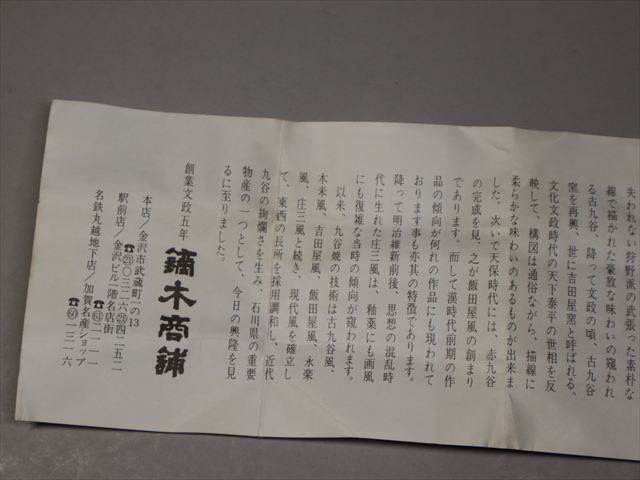 失われない狩野派の武張った素朴な
線で描かれた豪放な味わいの窺われ
る古九谷、降って文政の頃、古九谷
窯を再興、世に吉田屋窯と呼ばれる、
文化文政時代の天下泰平の世相を反
映して、構図は通俗ながら、描線に
柔らかな味わいのあるものが出来ま
した。次いで天保時代には、赤九谷
の完成を見、之が飯田屋風の創まり
であります。而して漢時代前期の作
品の傾向が何れの作品にも現われて
おります事も亦其の特徴であります。
降って明治維新前後、思想の混乱時
代に生れた庄三風は、釉薬にも画風
にも複雑な当時の傾向が窺われます。
以来、九谷焼の技術は古九谷風、
木米風、吉田屋風、飯田屋風、永楽
風、庄三風と続き、現代風を確立し
て、東西の長所を採用調和し、近代
九谷の絢爛さを生み、石川県の重要
物産の一つとして、今日の興隆を見
るに至りました。
創業文政五年
鏑木商舗
本店/金沢市武蔵町一の13
☎㉑〇三二六㉑四二五二
駅前店/金沢ビル一階名店街
☎61二一一一
名鉄丸越地下店/加賀名産ショップ
☎60一三一六